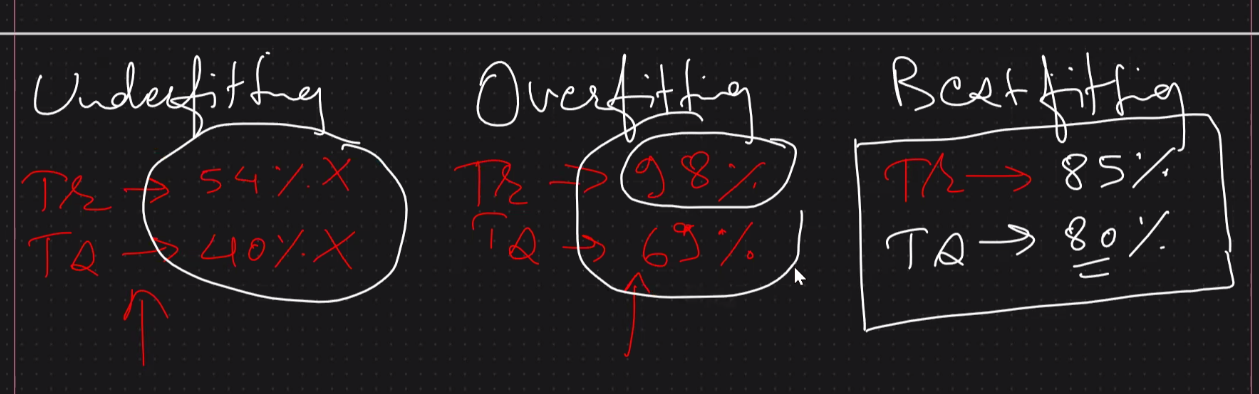 Underfitting
Tr → 54% X
Ta → 40% X
Overfitting
Tr → 98%
Ta → 69%
Best fitting
Tr → 85%
Ta → 80%